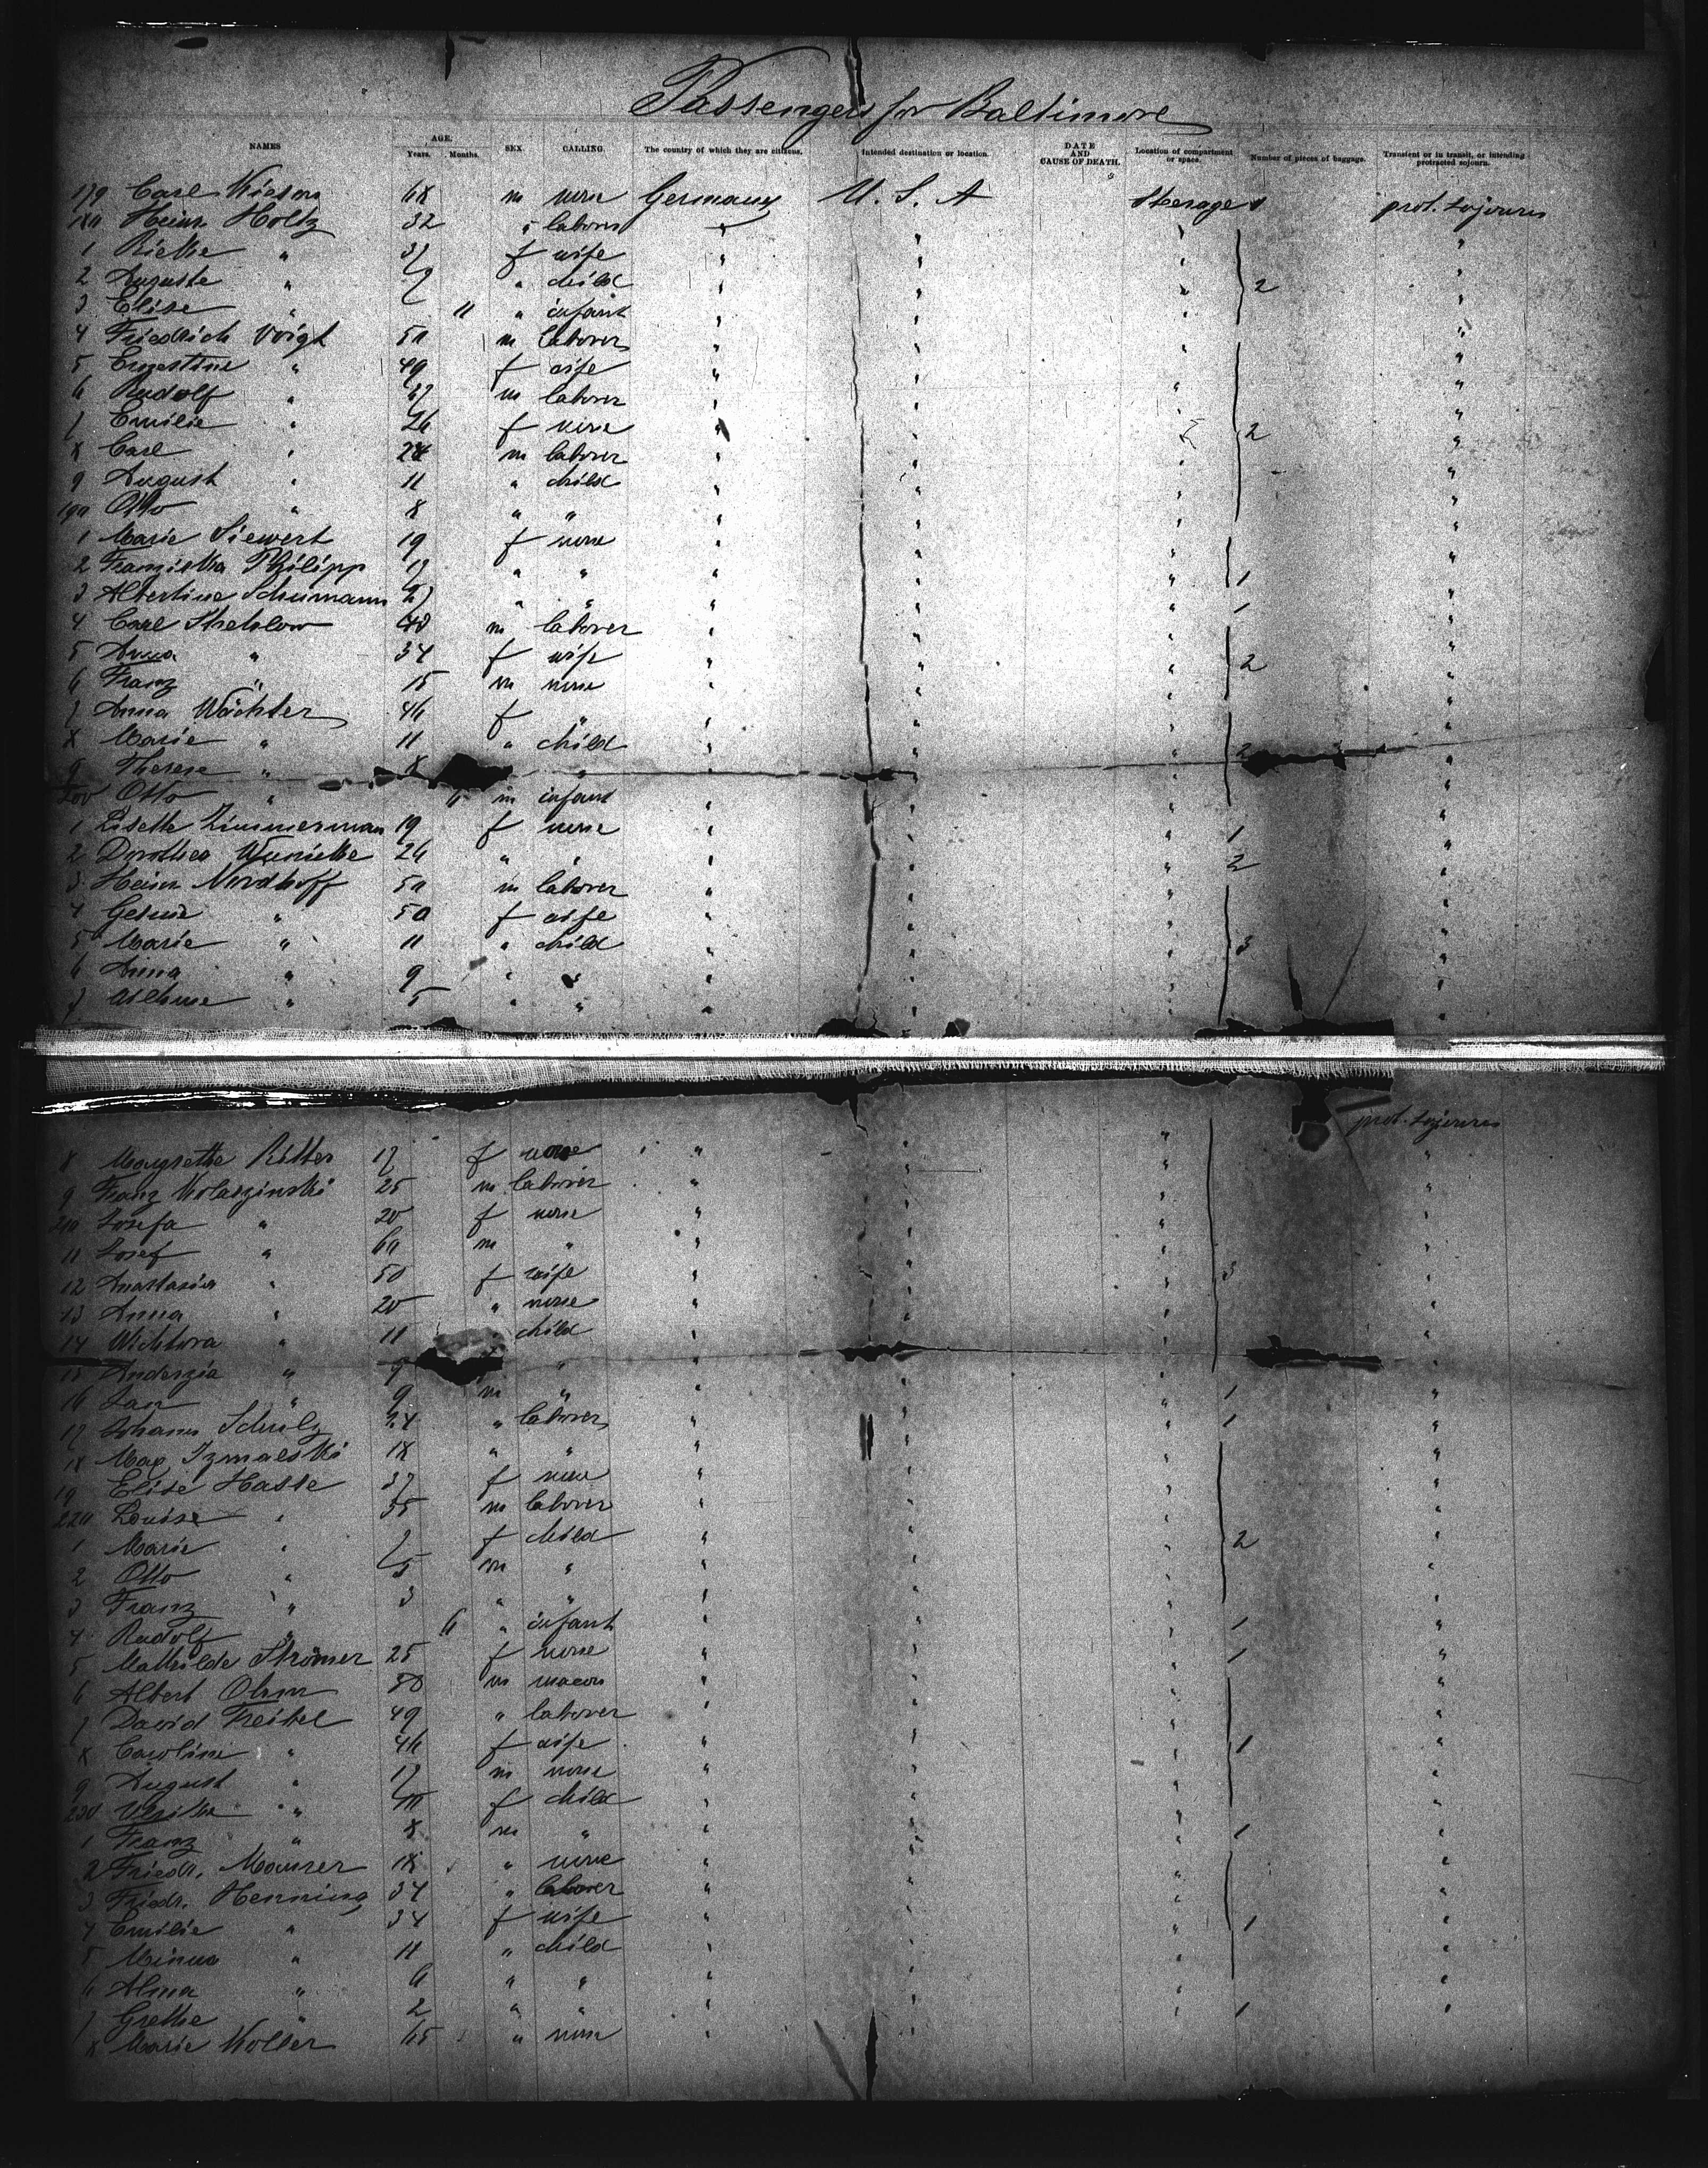 Passengers for Baltimore
NAMES AGE. Years. Months. SEX. CALLING. The country of which they are citizens. Intended destination or location. DATE AND CAUSE OF DEATH. Location of compartment or space. Number of pieces of baggage. Transient or in transit, or intending protracted sojourn.
179 Carl 68 m none Germany U. S. A Sterage 1 prot. sojourn
180 Heinr. Holtz 32 " laborer " " " "
1 Rieke " 37 f wife " " " "
2 Auguste " 7 " child " " " 2 "
3 Elise " 11 " infant " " " "
4 Friedrich Voigt 50 m laborer " " " "
5 Ernestine " 49 f wife " " " "
6 Rudolf " 27 m laborer " " " "
7 Emilie " 26 f none " " " 2 "
8 Carl " 24 m laborer " " " "
9 August " 11 " child " " " "
190 Otto " 8 " " " " " "
1 Marie Siewert 19 f none " " " "
2 Franziska Philipp 17 " " " " " 1 "
3 Albertine Schumann 27 " " " " " 1 "
4 Carl Strelow 48 m laborer " " " "
5 Anna " 34 f wife " " " 2 "
6 Franz " 15 m none " " " "
7 Anna Wächter 46 f " " " " "
8 Marie " 11 " child " " " 2 "
9 Therese " 8 " " " " "
200 Otto " 6 m infant " " " "
1 Lisette Zimmerman 19 f none " " " 1 "
2 Dorothea 26 " " " " " 2 "
3 Heinr. Nordhoff 50 m laborer " " " "
4 Gesine " 50 f wife " " " "
5 Marie " 11 " child " " " 3 "
6 Anna " 9 " " " " " "
7 " 5 " " " " " "
prot. sojourn
8 Margrethe Ritter 17 f none " " " "
9 Franz Kolaszinski 25 m laborer " " " "
210 Josefa " 20 f none " " " "
11 Josef " 60 m " " " " "
12 Anastasia " 50 f wife " " " 3 "
13 Anna " 20 " none " " " "
14 Wichtora " 11 " child " " " "
15 " 9 " " " " "
16 Jan " 9 m " " " " 1 "
17 Johann Schulz 24 " laborer " " " 1 "
18 Max 18 " " " " " "
19 Elise Hasse 37 f none " " " "
220 Louise " 35 m laborer " " " "
1 Marie " 7 f child " " " 2 "
2 Otto " 5 m " " " " "
3 Franz " 3 " " " " " "
4 Rudolf " 6 " infant " " " 1 "
5 Mathilde Strömer 25 f none " " " 1 "
6 Albert m " " " "
7 David Treibel 49 " laborer " " " "
8 Caroline " 46 f wife " " " 1 "
9 August " 17 m none " " " "
230 " 10 f child " " " "
1 Franz " 8 m " " " " 1 "
2 Friedr. Maurer 18 " none " " " "
3 Friedr. Henning 34 " laborer " " " "
4 Emilie " 34 f wife " " " 1 "
5 Minna " 11 " child " " " "
6 Alma " 6 " " " " " "
7 Grethe " 2 " " " " " 1 "
8 Marie Koller 65 " none "